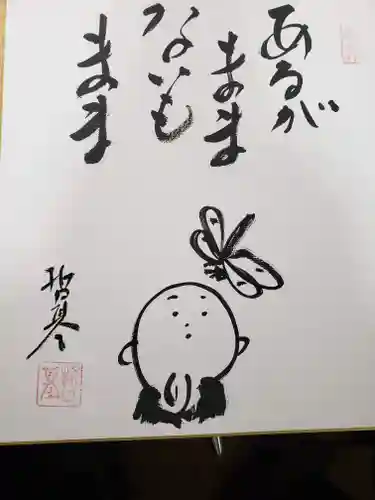 あるが
まま
ないも
まま